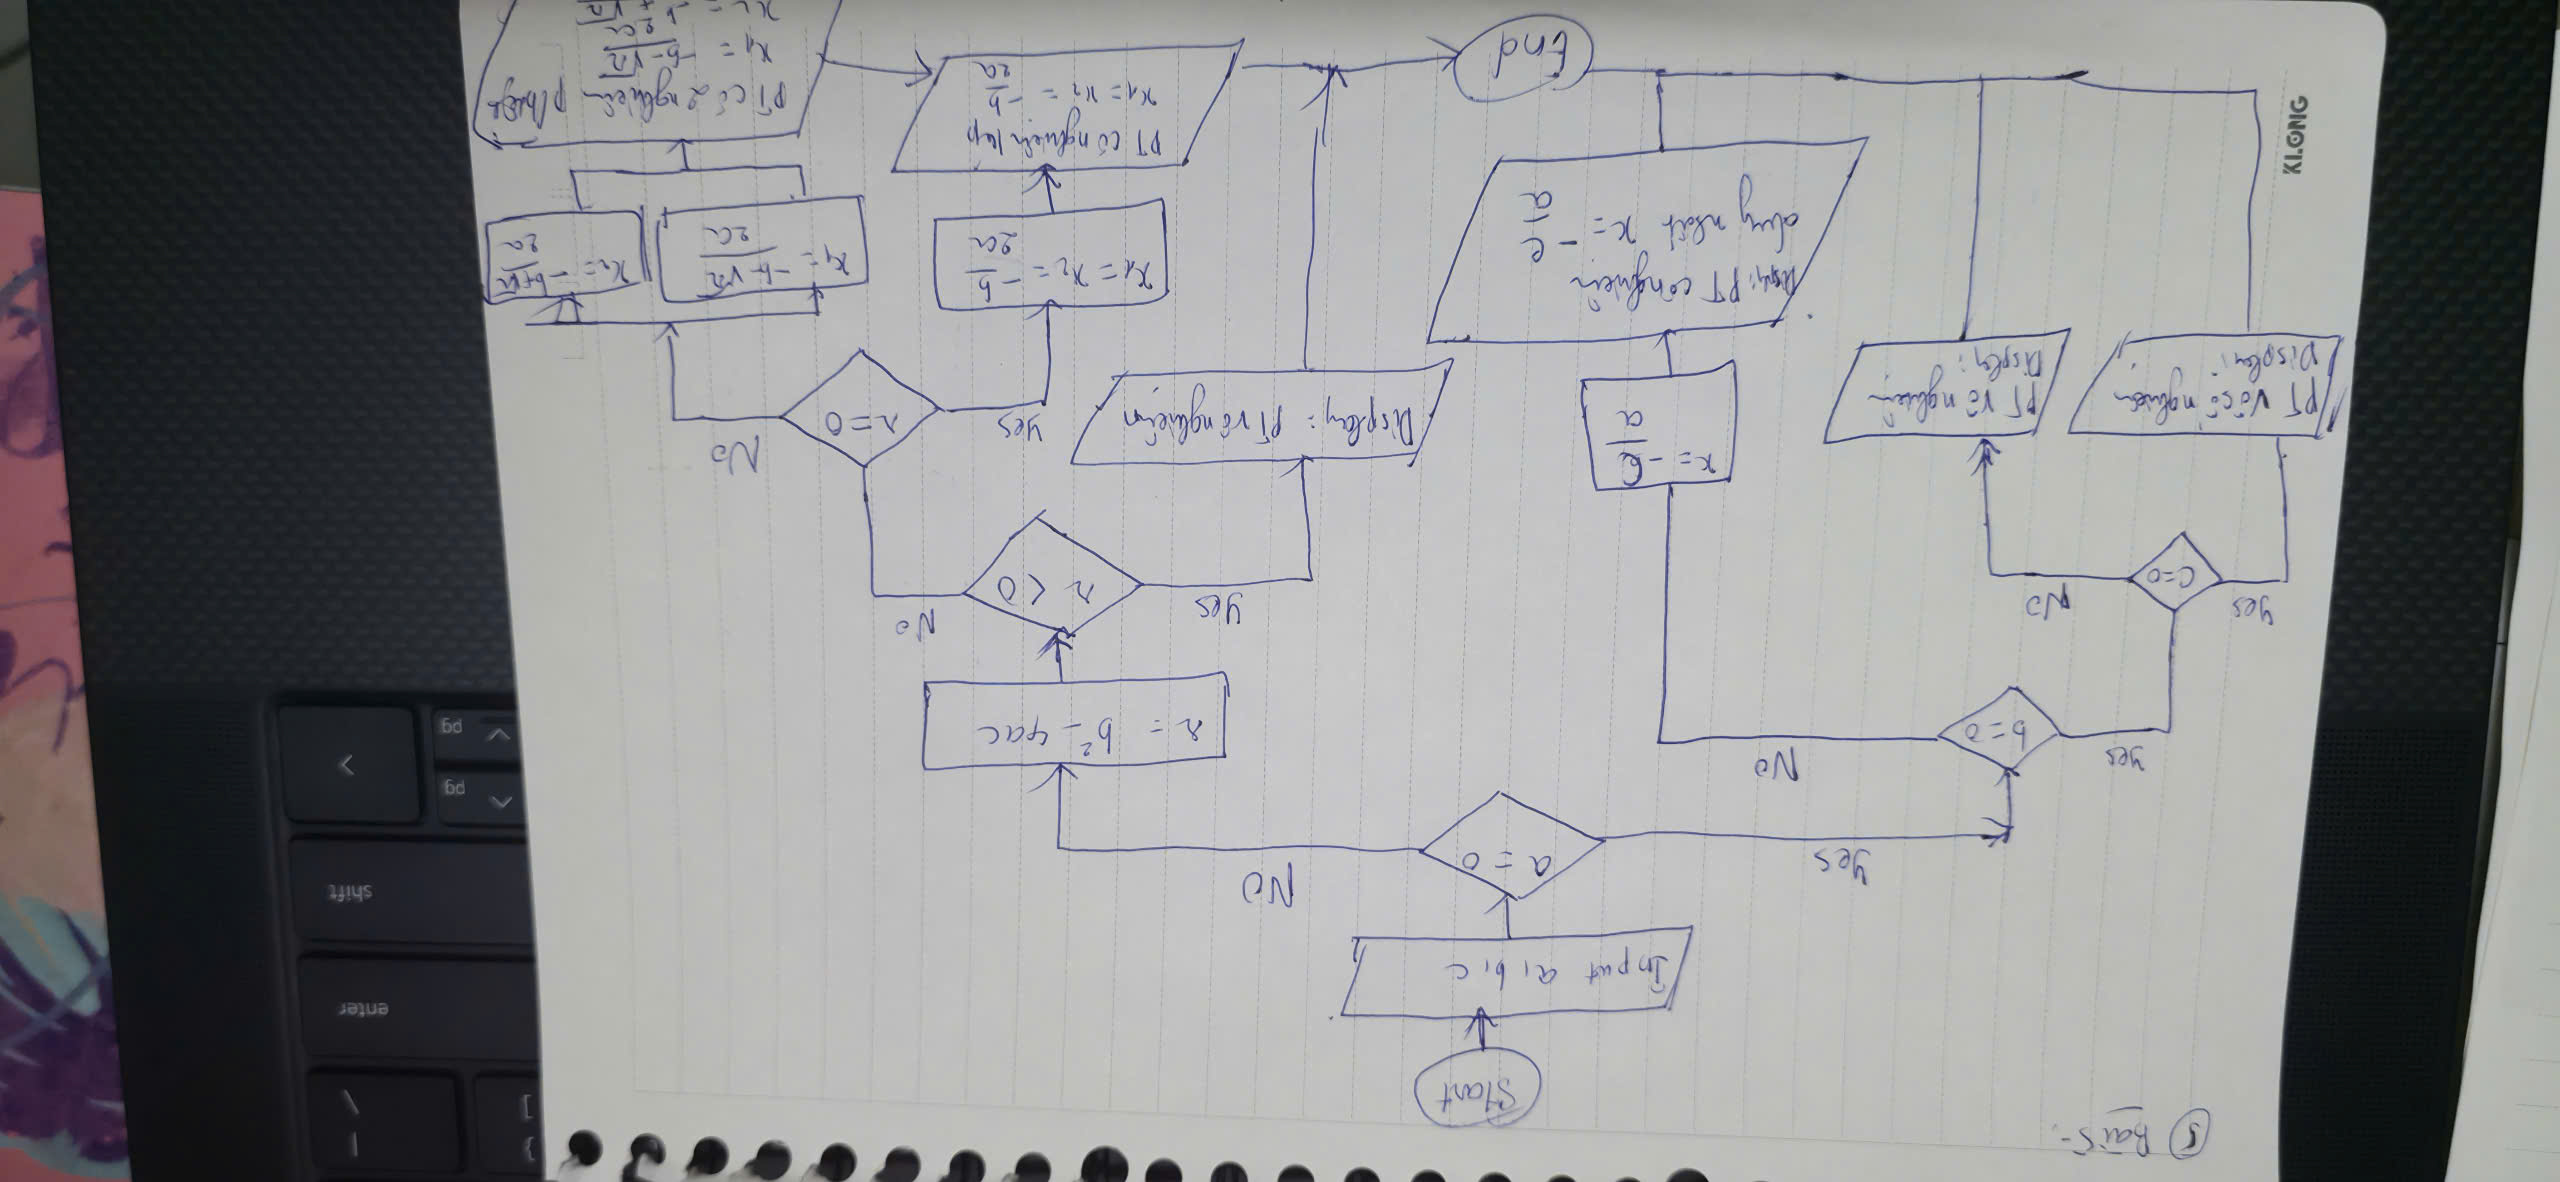 ⑤ Bài 5:
Start
Input a, b, c
a = 0
Yes
No
b = 0
Yes
No
c = 0
Yes
No
Display:
PT vô số nghiệm
Display:
PT vô nghiệm
x = -c/a
Display: PT có nghiệm
duy nhất x = -c/a
End
r = b² - 4ac
r < 0
Yes
No
Display: PT vô nghiệm
r = 0
Yes
No
x1 = x2 = -b/2a
PT có nghiệm kép
x1 = x2 = -b/2a
x1 = -b-√r/2a
x2 = -b+√r/2a
PT có 2 nghiệm phân biệt
x1 = -b-√r/2a
x2 = -b+√r
KLONG
pg
pg
shift
enter